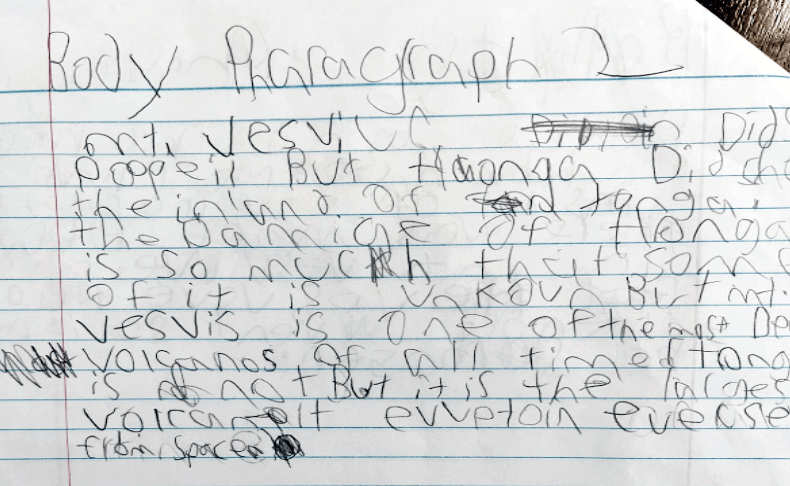 Body Pharagraph 2
mnt. Vesvius Did
popeii But Haonga Did
the inland of tonga.
the Damige of Honga
is so much that som
of it is unkoun But mt.
vesvis is one of the most De
volcanos of all time Tong
is not But it is the larges
volcan evvetoin
from space